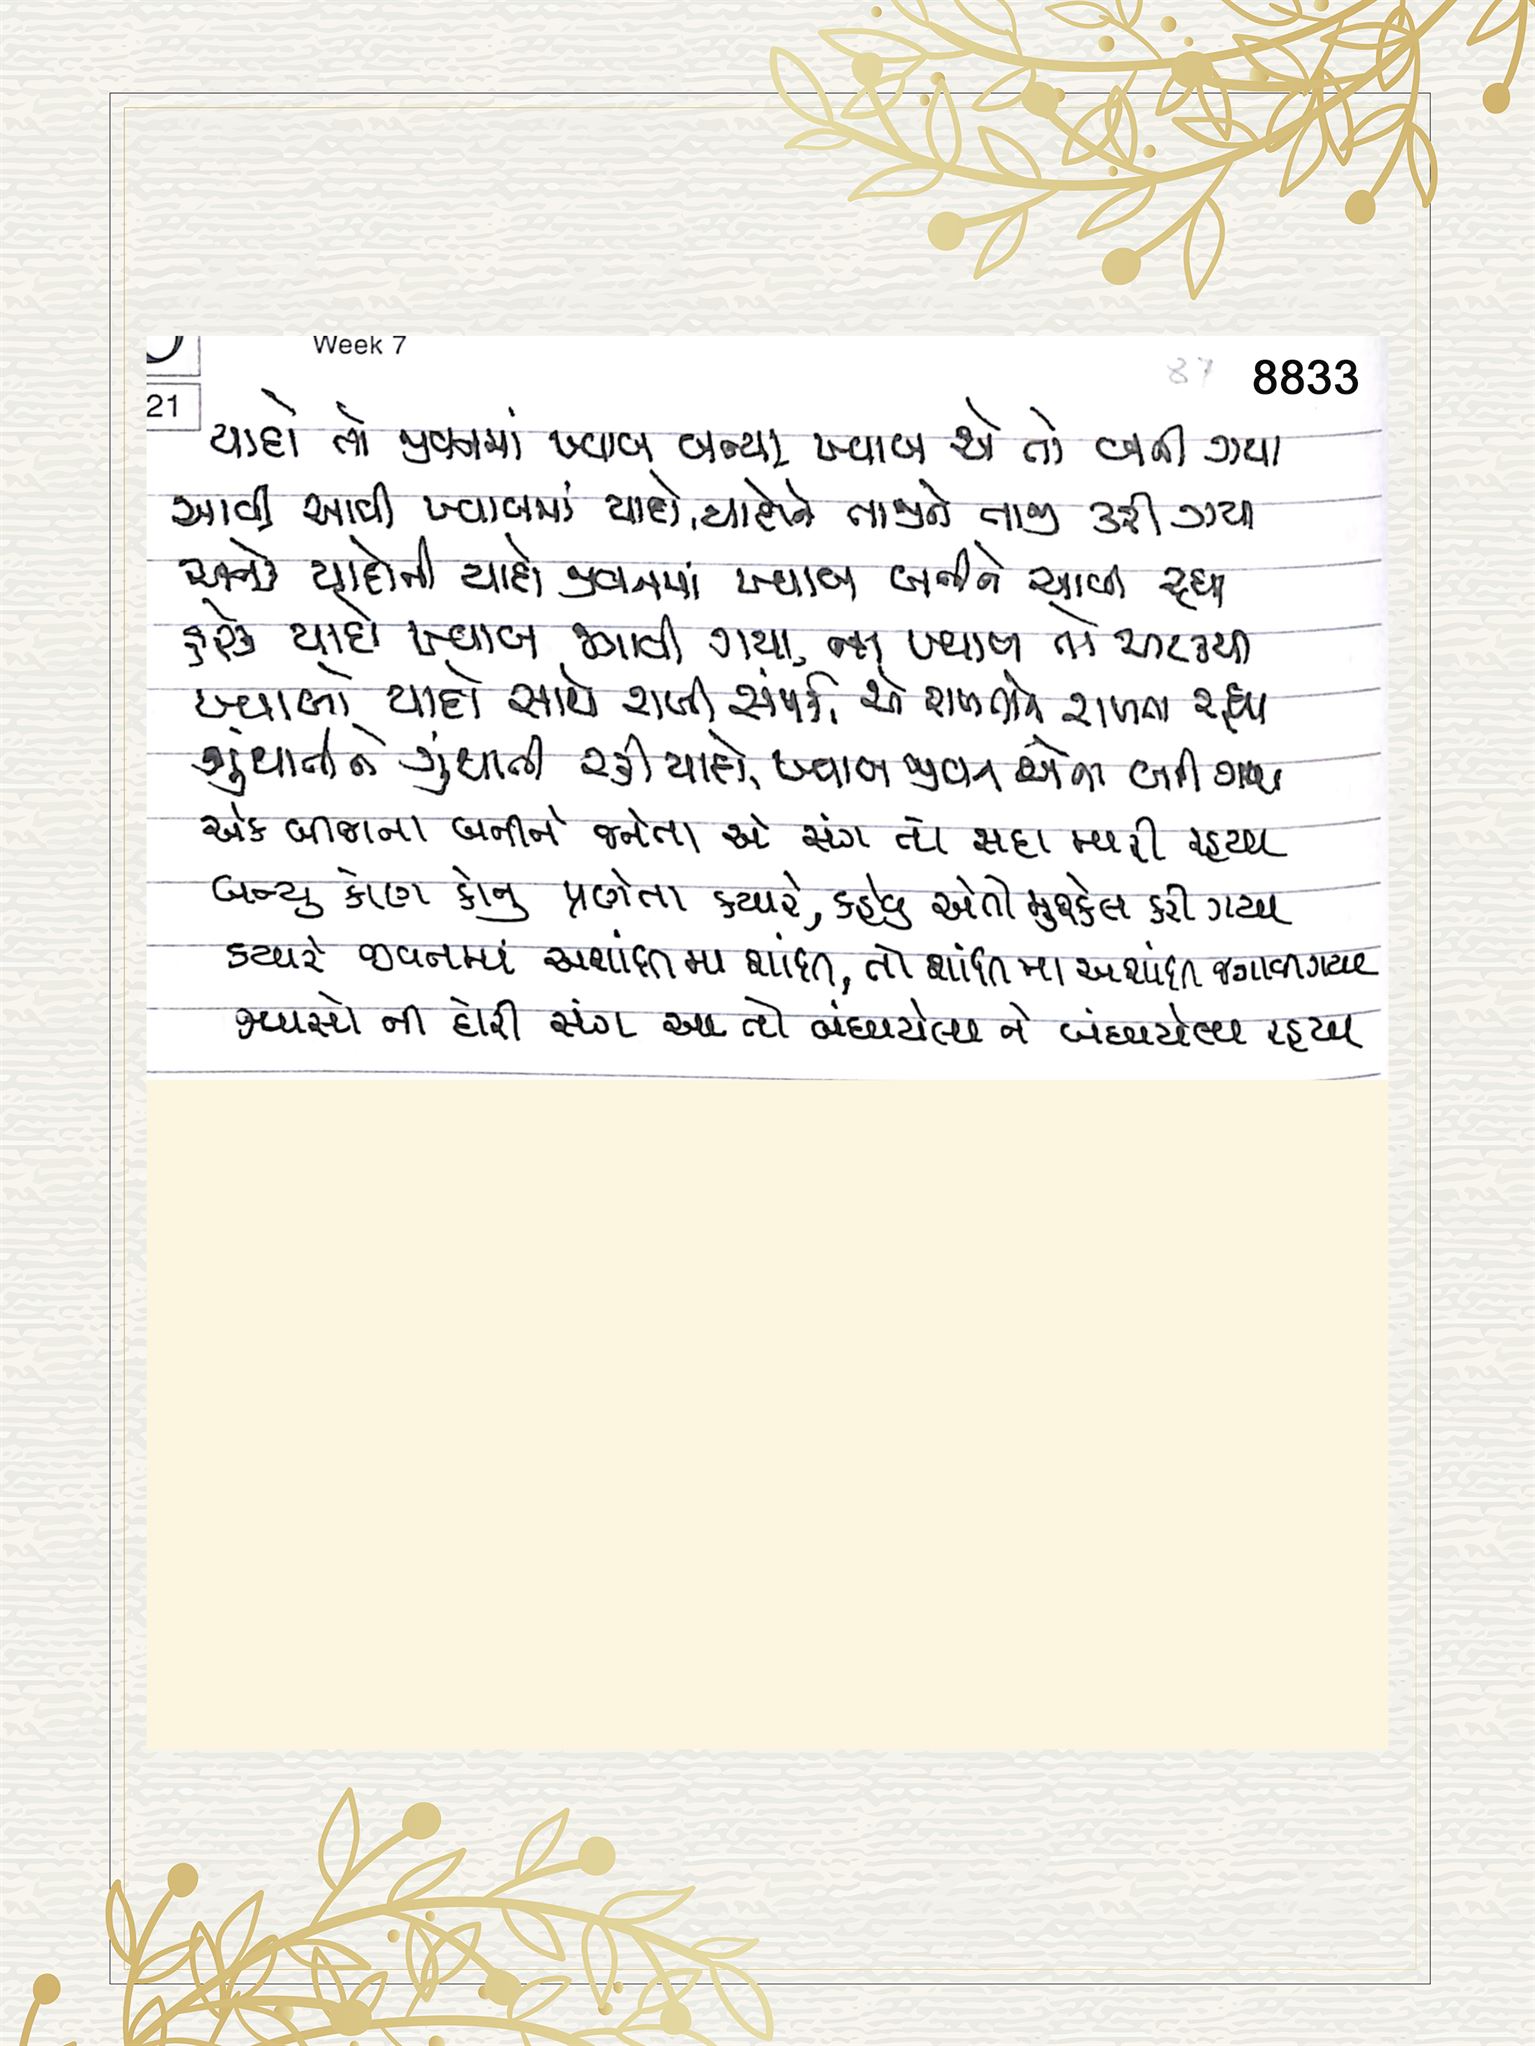 Week 7
87 8833
21
યાદો તો જીવનમાં ખ્વાબ બન્યા, ખ્વાબ એ તો બની ગયા
આવી આવી ખ્વાબમાં યાદો, યાદોને તાજીને તાજી કરી ગયા
અનેક યાદોની યાદો જીવનમાં ખ્વાબ બનીને આવી રહ્યા
હરેક યાદો ખ્વાબ જગાવી ગયા, ના ખ્વાબ તો અટક્યા
ખ્વાબો યાદો સાથે રાખી સંપર્ક, એ રાખતાને રાખતા રહ્યા
ગુંથાતીને ગુંથાતી રહી યાદો, ખ્વાબ જીવન એના બની ગયા
એક બીજાના બનીને જનેતા એ સંગ તો સદા મારી રહ્યા
બન્યુ કોણ કોનુ પ્રણેતા ક્યારે, કહેવુ એતો મુશ્કેલ કરી ગયા
ક્યારે જીવનમાં અશાંતિ મા શાંતિ, તો શાંતિ મા અશાંતિ જગાવી ગયા
શ્વાસો ની દોરી સંગ આ તો બંધાયેલા ને બંધાયેલા રહ્યા